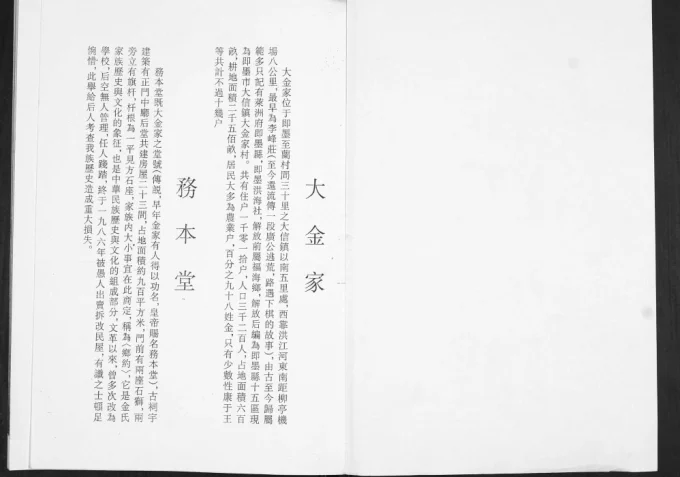 大金家
大金家位于即墨至蘭村間三十里之大信鎮以南五里處,西靠洪江河東南距柳亭機
場八公里,最早為李峰莊(至今還流傳一段廣公逃荒,路遇下棋的故事),由古至今歸屬
範多只記有萊洲府即墨縣,即墨洪海社,解放前屬福海鄉,解放后編為即墨縣十五區現
為即墨市大信鎮大金家村。共有住户一千零一拾户,人口三千二百人,占地面積六百
畝,耕地面積二千五佰畝,居民大多為農業户,百分之九十八姓金,只有少數性康于王
等共計不過十幾户
務本堂
務本堂既大金家之堂號(傳說,早年金家有人得以功名,皇帝賜名務本堂),古祠宇
建築有正門中廳后堂共建房屋二十三間,占地面積約九百平方米,門前有兩座石獅,兩
旁立有旗杆,杆根為一平見方石座,家族内大小事宜在此商定,稱為(鄉約),它是金氏
家族歷史與文化的象征,也是中華民族歷史與文化的組成部分,文革以來,曾多次改為
學校,后空無人管理,任人踐踏,終于一九八六年被愚人出賣拆改民屋,有識之士頓足
惋惜,此舉給后人考查我族歷史造成重大損失。